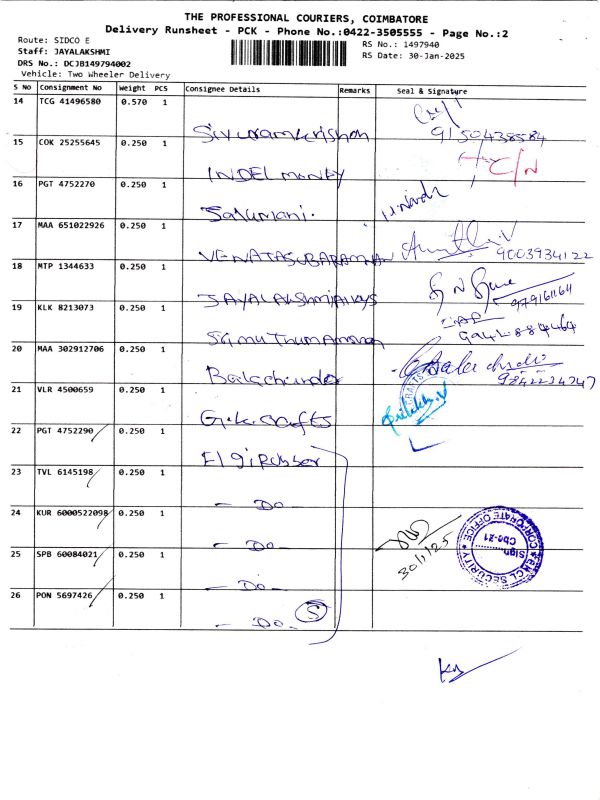 THE PROFESSIONAL COURIERS, COIMBATORE
Delivery Runsheet - PCK - Phone No.:0422-3505555 - Page No.:2
Route: SIDCO E
Staff: JAYALAKSHMI
DRS No.: DCJB149794002
Vehicle: Two Wheeler Delivery
RS No.: 1497940
RS Date: 30-Jan-2025
S No Consignment No Weight PCS Consignee Details Remarks Seal & Signature
14 TCG 41496580 0.570 1
Sivaramkrishnan 9150438584
15 COK 25255645 0.250 1
INDEL MONEY
16 PGT 4752270 0.250 1
Salumani.
17 MAA 651022926 0.250 1
VENATASUBARAMNAN 9003934122
18 MTP 1344633 0.250 1
19 KLK 8213073 0.250 1
20 MAA 302912706 0.250 1
Balachander 9842234747
21 VLR 4500659 0.250 1
G.K. crafts
22 PGT 4752290 0.250 1
Elgi Rubber
23 TVL 6145198 0.250 1
- Do -
24 KUR 6000522098 0.250 1
- Do - 30/1/25
25 SPB 60084021 0.250 1
- Do -
26 PON 5697426 0.250 1
- Do - 5
CORPORATE OFFICE
Sign
Cbe-21
SECURITY